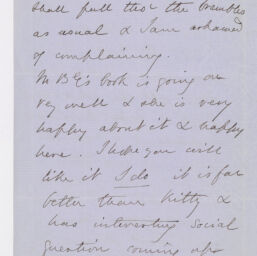 shall pull thro' the brambles
as usual & I am ashamed
of complaining.
M B E's book is going on
very well & she is very
happy about it & happy
here. I hope you will
like it I do it is far
better than Kitty &
has interesting social
question coming